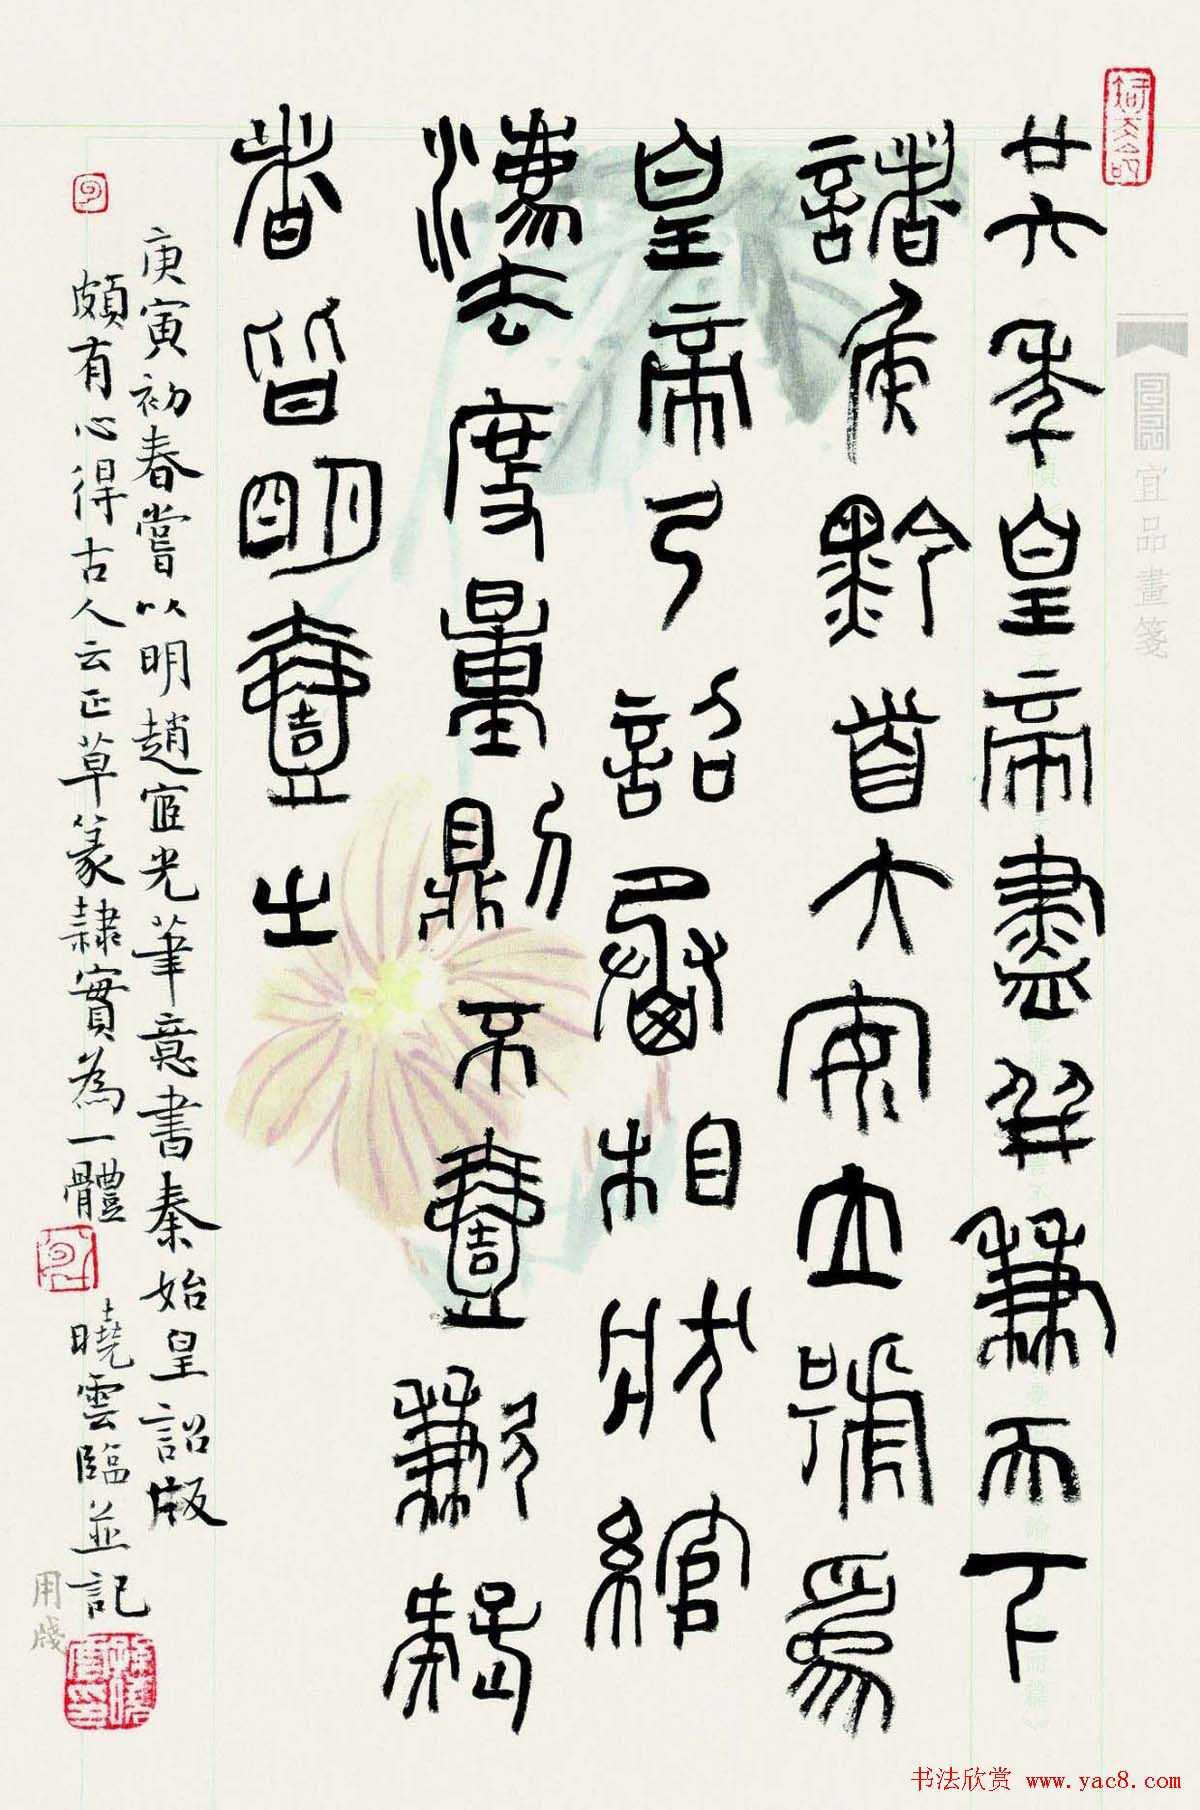 廿六年皇帝盡并兼天下
諸侯黔首大安立號為
皇帝乃詔丞相狀綰
灋度量則不壹歉疑
者皆明壹之
庚寅初春嘗以明趙宧光筆意書秦始皇詔版
頗有心得古人云正草篆隸實為一體 曉雲臨並記
宜品畫箋
用牋
书法欣赏 www.yac8.com